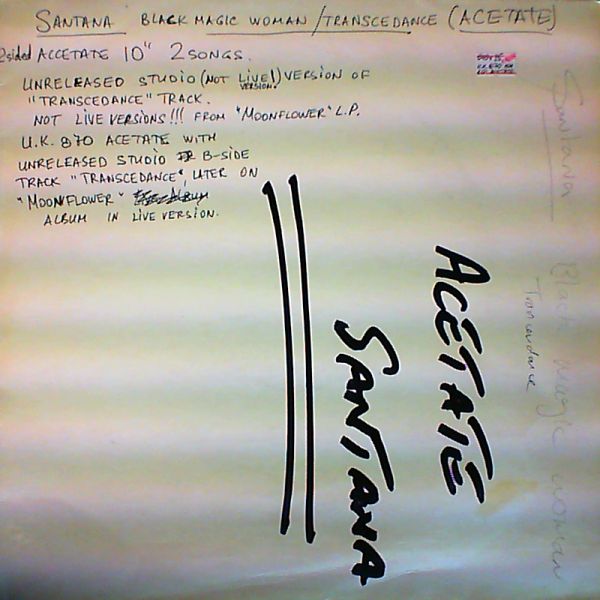 SANTANA BLACK MAGIC WOMAN/TRANSCEDANCE (ACETATE)
2sided ACCETATE 10" 2 SONGS.
UNRELEASED STUDIO (NOT LIVE!) VERSION OF
VERSION!
"TRANSCEDANCE" TRACK.
NOT LIVE VERSIONS!!! FROM "MOONFLOWER" L.P.
U.K. 870 ACETATE WITH
UNRELEASED STUDIO B-SIDE
TRACK "TRANSCEDANCE", LATER ON
"MOONFLOWER"
ALBUM IN LIVE VERSION.
ACETATE
SANTANA
Santana Black magic woman
Trancendance